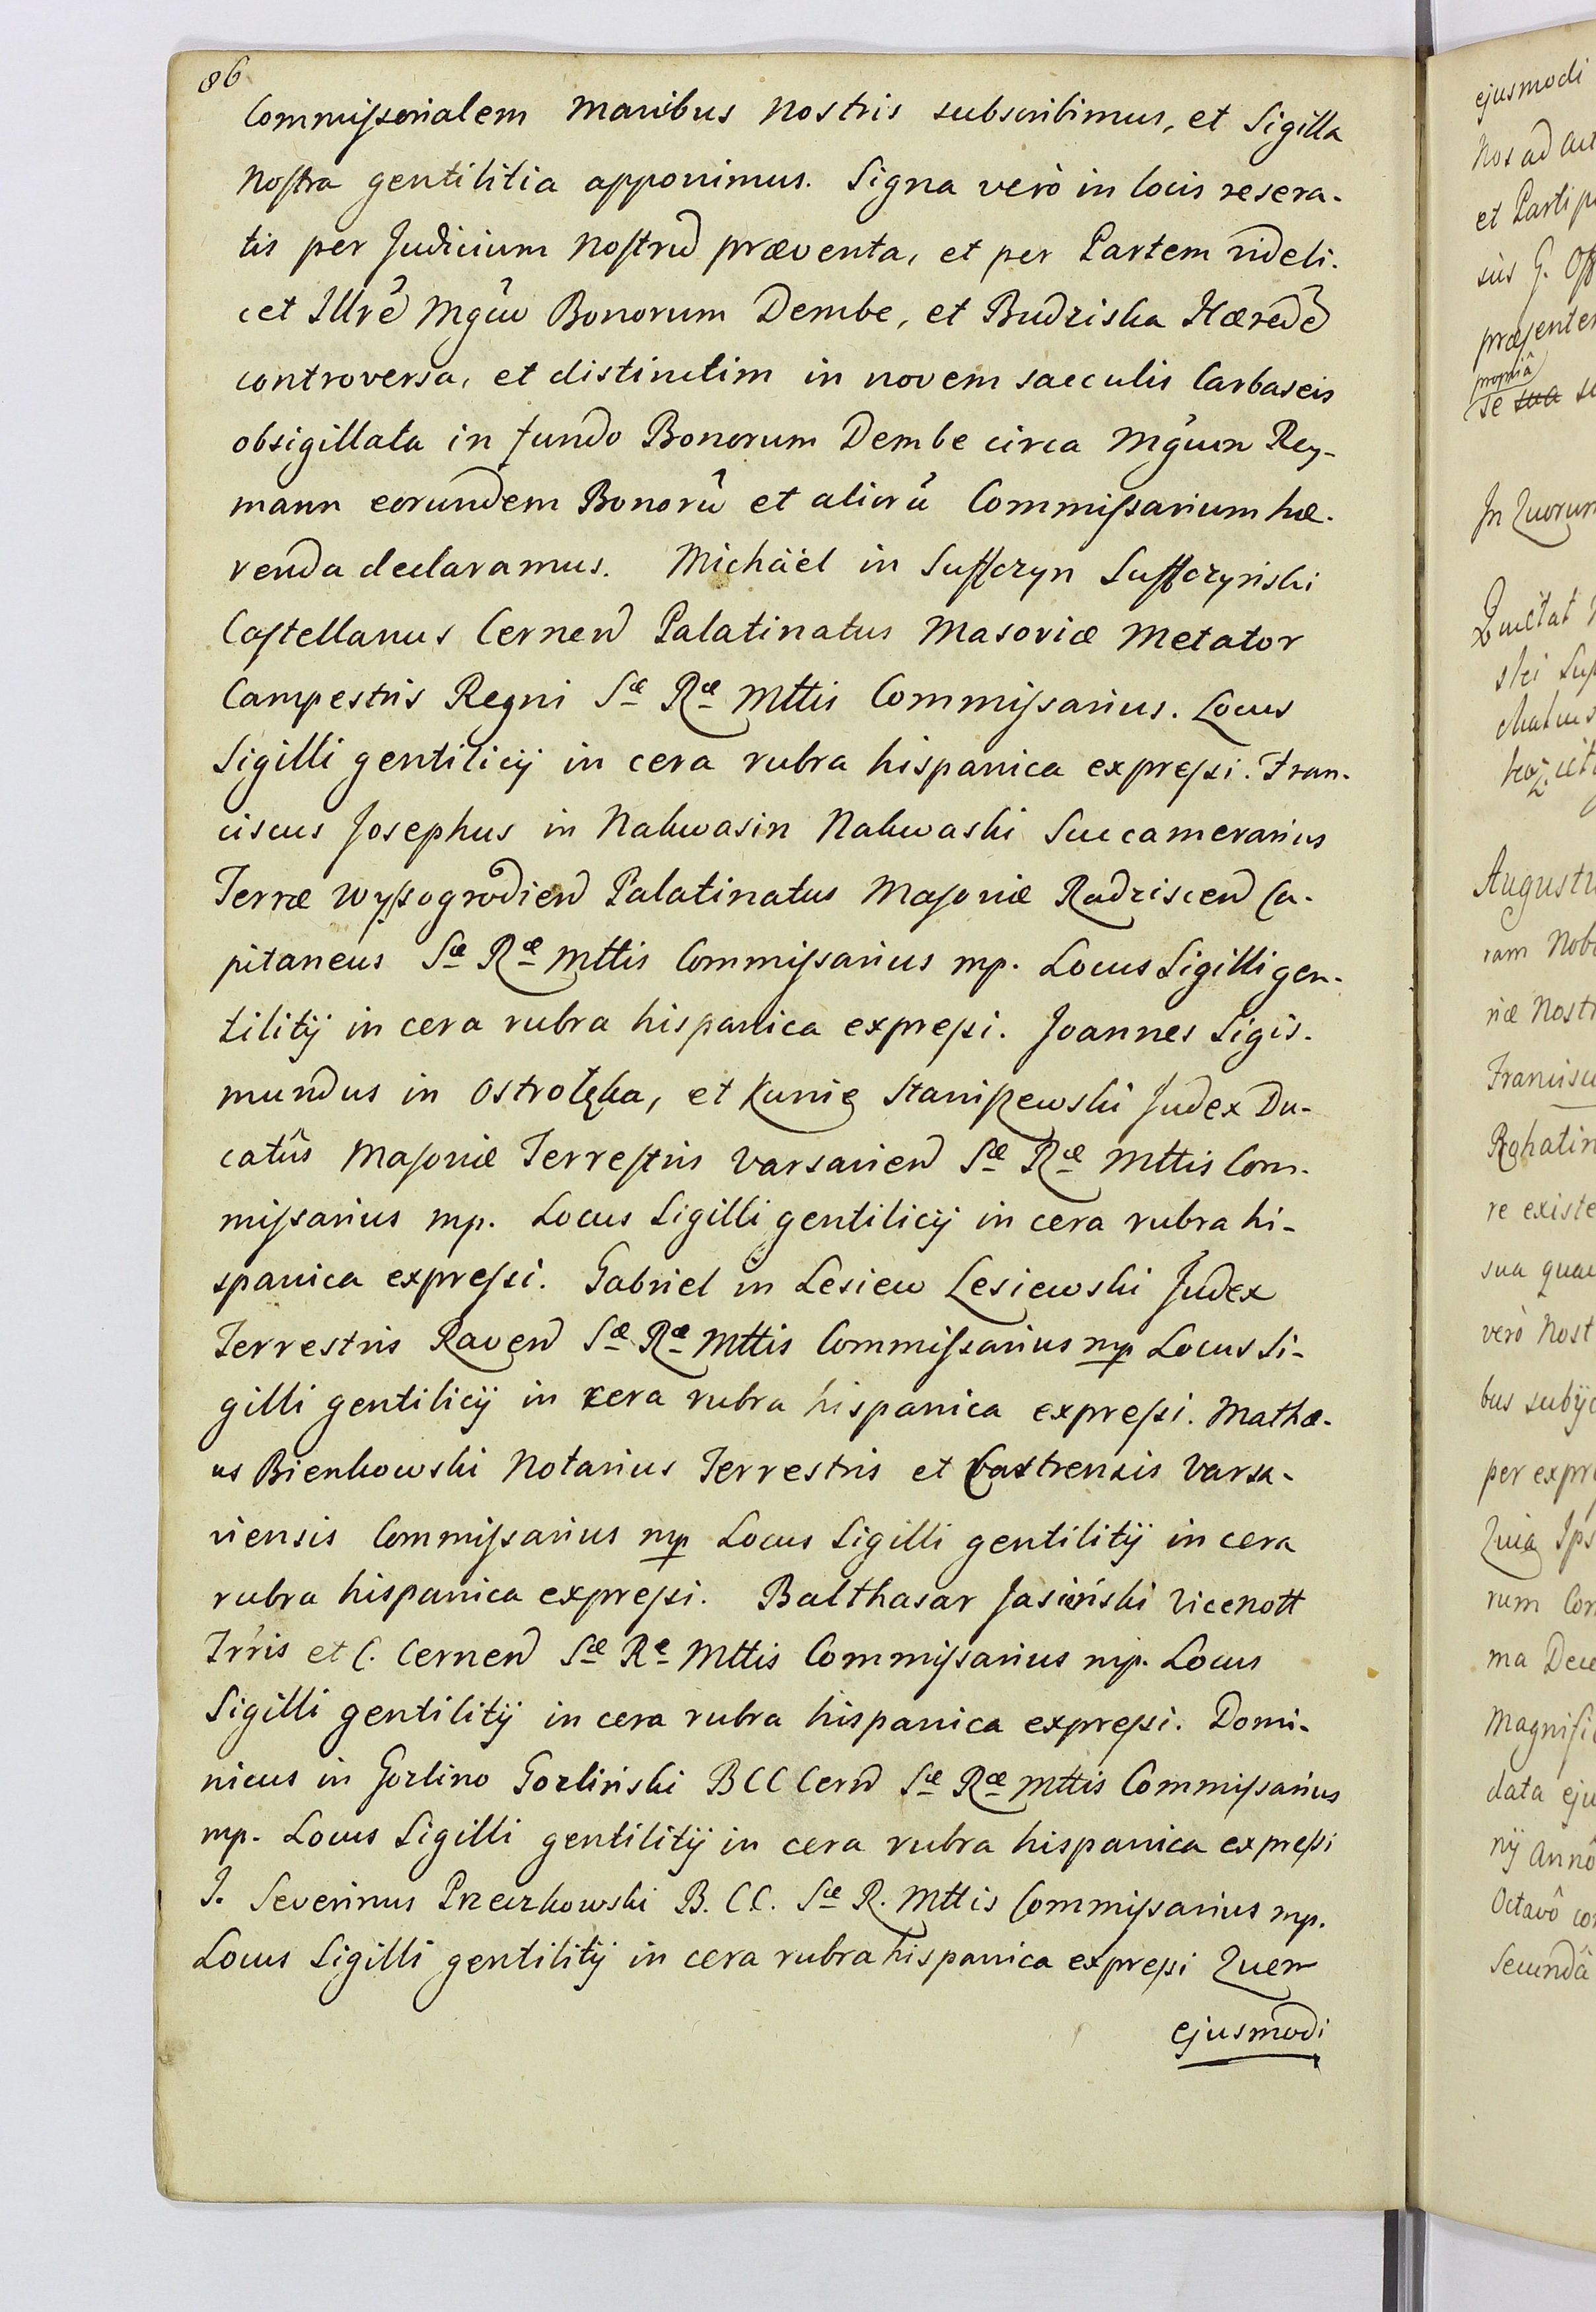 86
Commissorialem Manibus Nostris subscribimus, et Sigilla
Nostra gentilitia apponimus. Signa verò in locis resera-
tis per Judicium Nostrũ præventa, et per Partem videli-
cet Illrẽ Mgũ Bonorum Dembe, et Budziska Hæredẽ
controversa, et distinctim in novem sacculis Carbaseis
obsigillata in fundo Bonorum Dembe circa Mgũm Rey-
mann eorundem Bonorũ et aliorũ Commissarium hæ-
renda declaramus. Michäel in Suffczyn Suffczyński
Castellanus Cernen Palatinatus Masoviæ Metator
Campestris Regni Sæ Ræ Mttis Commissarius. Locus
Sigilli gentilicij in cera rubra hispanica expressi. Fran-
ciscus Josephus in Nakwasin Nakwaski Succamerarius
Terræ Wyssogrodien Palatinatus Masoviæ Radziscen Ca-
pitaneus Sæ Ræ Mttis Commissarius mp. Locus Sigilli gen-
tilitij in cera rubra hispanica expressi. Joannes Sigis-
mundus in Ostrołęka, et Kunie Staniszewski Judex Du-
catûs Masoviæ Terrestris Varsavien Sæ Ræ Mttis Com-
missarius mp. Locus Sigilli gentilicij in cera rubra hi-
spanica expressi. Gabriel in Lesiew Lesiewski Judex
Terrestris Raven Sæ Ræ Mttis Commissarius mp Locus Si-
gilli gentilicij in cera rubra hispanica expressi. Mathæ-
us Bienkowski Notarius Terrestris et Castrensis Varsa-
viensis Commissarius mp Locus Sigilli gentilitij in cera
rubra hispanica expressi. Balthasar Jasiński Vicenott
Trris et C. Cernen Sæ Re Mttis Commissarius mp. Locus
Sigilli gentilitij in cera rubra hispanica expressi. Domi-
nicus in Gozlino Gozliński BCC Cern Sæ Ræ Mttis Commissarius
mp. Locus Sigilli gentilitij in cera rubra hispanica expressi
J. Severinus Przeczkowski B. CC. Sæ R. Mttis Commissarius mp.
Locus Sigilli gentilitij in cera rubra hispanica expressi Quem
ejusmodi
ejusmodi
Nos ad
et Parti
præsente
propriâ
te sua
In Quorum
Augustu
ram Nob
riæ Nost
Francisc
Rohatin
re existe
sua
verò Nost
bus subij
per expr
Quia Ips
rum Com
ma Dece
Magnifi
data eju
nij Annô
Octavô
Secundâ